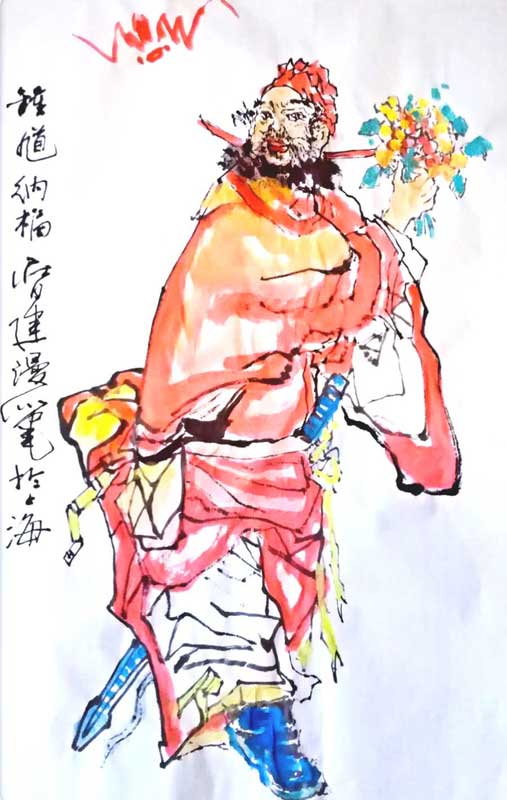 鍾馗納福 建漫筆於上海